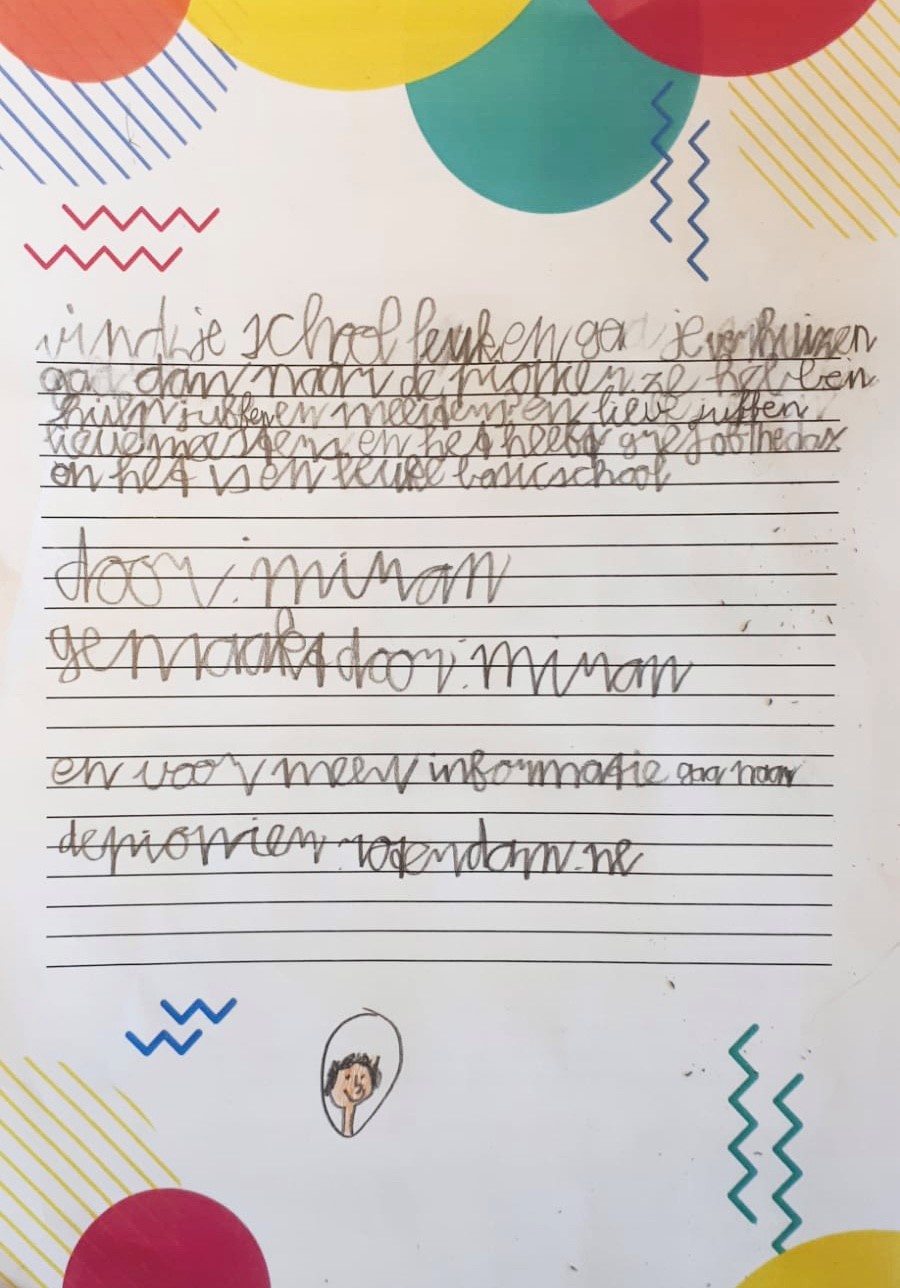 vind je school leuk en ga je verhuizen
ga dan naar de pionier. ze hebben
juffen en meesters en lieve juffen
lieve meesters en het heeft
en het is en leuke basisschool
door: miran
gemaakt door: miran
en voor meer informatie ga naar
depionier